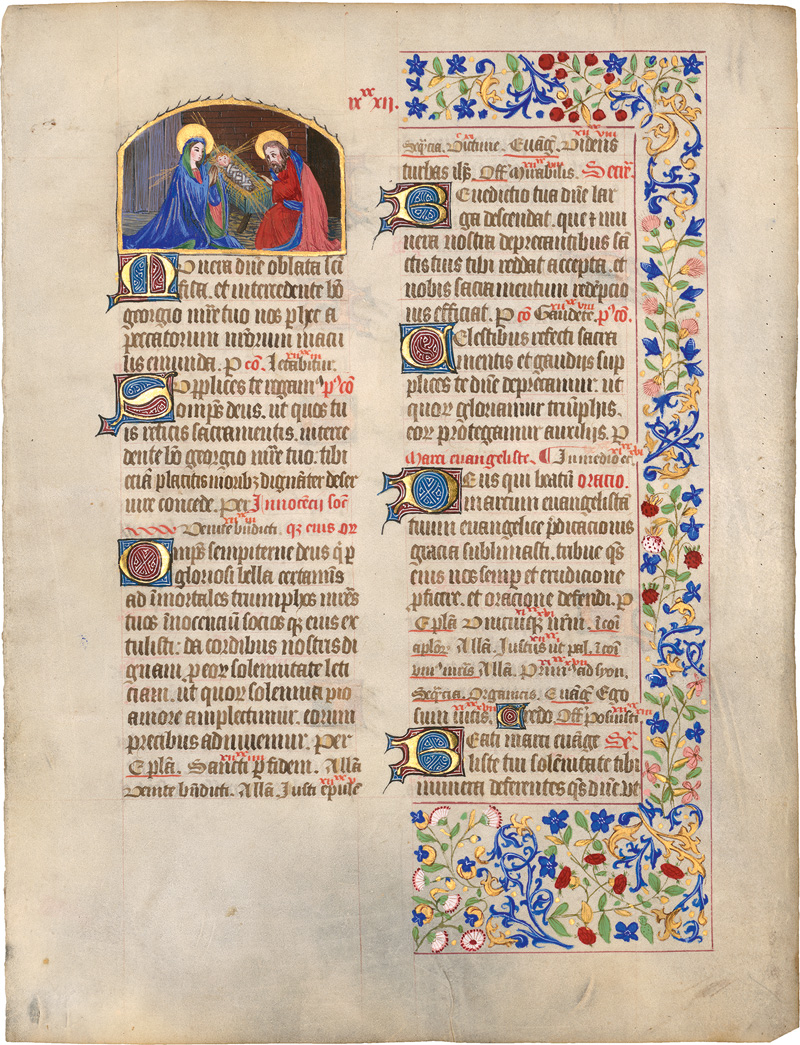 ix xx xii.
Munera dñe oblata sci
fica. et intercedente bõ
georgio mr̃e tuo nos p hec a
peccatorum nrorum macu
lis emunda. P cõ. Letabitur.
Supplices te rogam⁹ p⁹cõ
omps deus. ut quos tu
is reficis sacramentis. interce
dente bõ georgio mr̃e tuo. tibi
eciã placitis moribz dignãter deser
uire concede. Per Innocẽcii soc̃
Venite bñdicti. qz eius or̃
Omps sempiterne deus q̃ p
gloriosi bella certamis
ad ĩmortales triumphos mr̃es
tuos ĩnocenciũ socios qz eius ex
tulisti: da cordibus nostris di
gnam. p eoꝝ solennitate leti
ciam. ut quoꝝ solennia pio
amore amplectimur. eorum
precibus adiuuemur. Per
Epl̃a. Sancti p fidem. All̃a
Venite bñdicti. All̃a. Justi epul̃e
Seq̃cia. Euãg̃. Videns
turbas ih̃s. Off̃ Mirabilis. Secr̃e.
Benedictio tua dñe lar
ga descendat. que ⁊ mu
nera nostra deprecantibus sã
ctis tuis tibi reddat accepta. et
nobis sacramentum redẽpcio
nis efficiat. P cõ Gaudete. p⁹cõ.
Celestibus refecti sacra
mentis et gaudiis sup
plices te dñe deprecamur. ut
quoꝝ gloriamur triũphis.
eoꝝ protegamur auxiliis. P
Marci euangeliste. In medio ec̃.
Deus qui beatũ oracio.
marcum euangelistã
tuum euangelice p̃dicacionis
gracia sublimasti. tribue q̃s
eius nos semp et erudicione
p̃ficere. et oracione defendi. P
Epl̃a Unicuiqz nr̃m.
All̃a. Justus ut pal.
All̃a. Prim⁹ ad syon.
Seq̃cia. Organicis. Euãg̃ Ego
sum uitis. Credo. Off̃ Posuisti.
Beati marci euãge Se.
liste tui solẽnitate tibi
munera deferentes q̃s dñe. ut